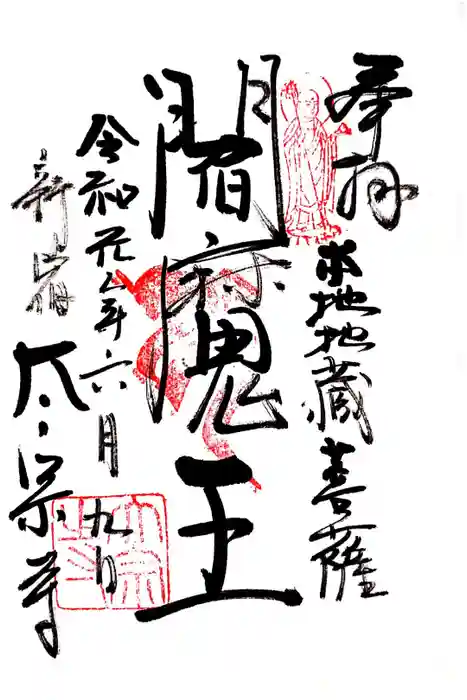 奉拝
本地地蔵菩薩
閻魔王
令和元年六月九日
新宿
太宗寺